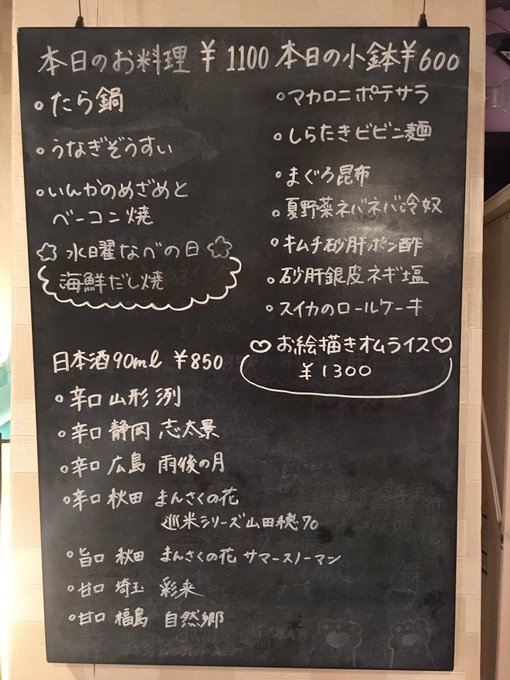 本日のお料理 ¥1100
・たら鍋
・うなぎぞうすい
・いんかのめざめと
ベーコン焼
☆水曜なべの日☆
海鮮だし焼
本日の小鉢¥600
・マカロニポテサラ
・しらたきビビン麺
・まぐろ昆布
・夏野菜ネバネバ冷奴
・キムチ砂肝ポン酢
・砂肝銀皮ネギ塩
・スイカのロールケーキ
♡お絵描きオムライス♡
¥1300
日本酒90ml ¥850
・辛口 山形 洌
・辛口 静岡 志太泉
・辛口 広島 雨後の月
・辛口 秋田 まんさくの花
巡米シリーズ山田穂70
・旨口 秋田 まんさくの花 サマースノーマン
・甘口 埼玉 彩来
・甘口 福島 自然郷